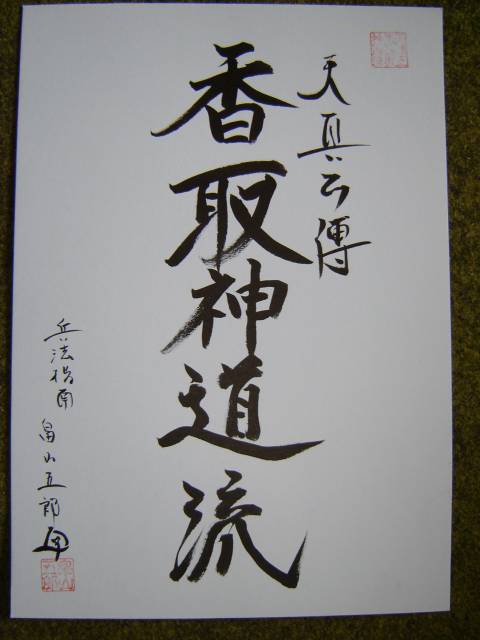 天真正傳
香取神道流
兵法指南 畠山五郎